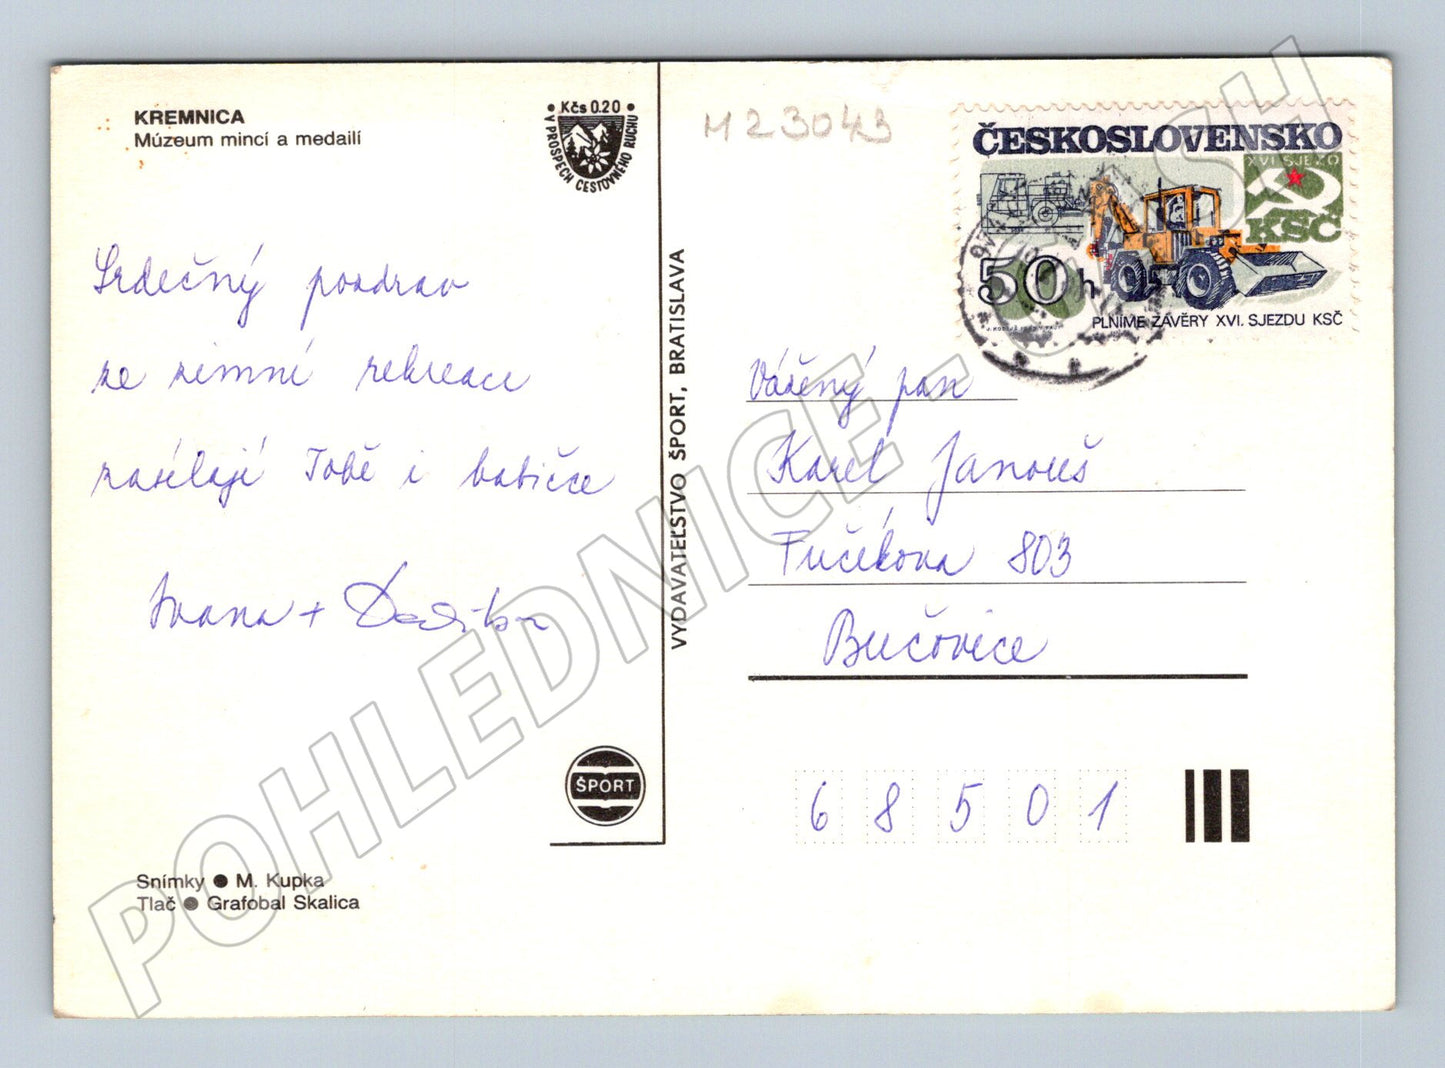 KREMNICA
Múzeum mincí a medailí
• Kčs 0.20 •
V PROSPECH CESTOVNÉHO RUCHU
M23043
ČESKOSLOVENSKO
XVI. SJEZD
KSČ
50 h
PLNÍME ZÁVĚRY XVI. SJEZDU KSČ
Srdečný pozdrav
ze zimní rekreace
zasílají Tobě i babičce
Ivana +
VYDAVATEĽSTVO ŠPORT, BRATISLAVA
Vážený pan
Karel Janouš
Fučíkova 803
Bučovice
68501
ŠPORT
Snímky ● M. Kupka
Tlač ● Grafobal Skalica